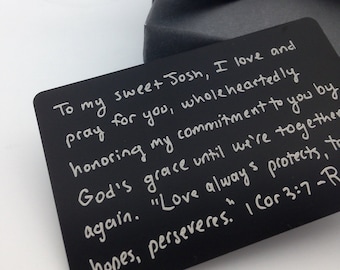 To my sweet Josh, I love and
pray for you, wholeheartedly
honoring my commitment to you by
God's grace until we're together
again. "Love always protects,
hopes, perseveres." 1 Cor 3:7 -R